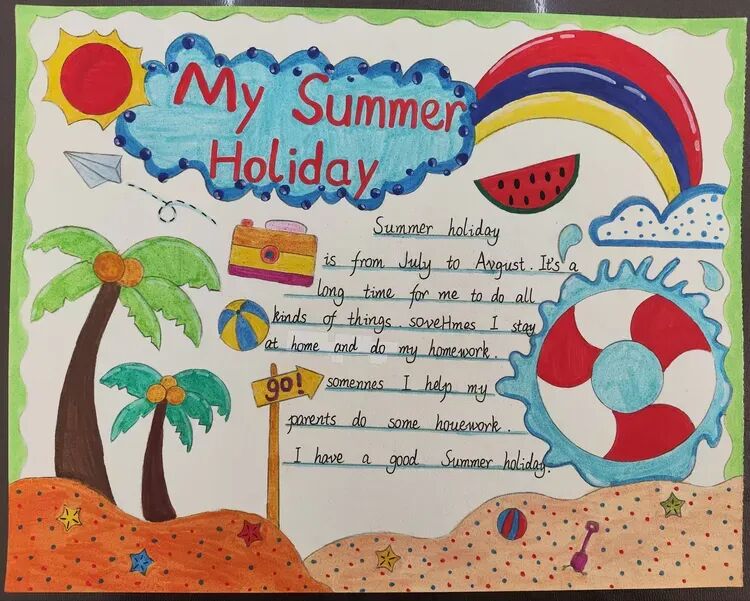 My Summer
Holiday
Summer holiday
is from July to Avgust. It's a
long time for me to do all
kinds of things. soveHmes I stay
at home and do my homework.
go!
somennes I help my
parents do some houework.
I have a good Summer holiday.